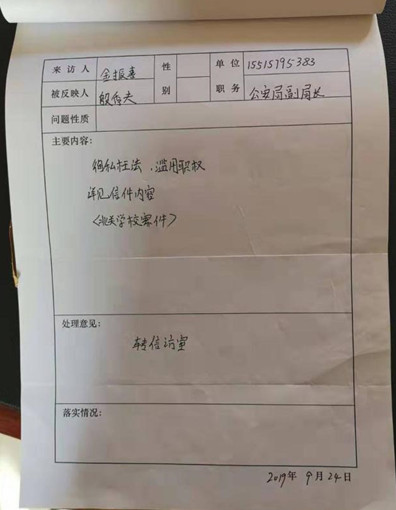 来访人 金振喜 性别 单位 15515795383
被反映人 殷伍夫 职务 公安局副局长
问题性质
主要内容:
徇私枉法,滥用职权
详见信件内容
<关学校案件>
处理意见:
转信访室
落实情况:
2019年9月24日